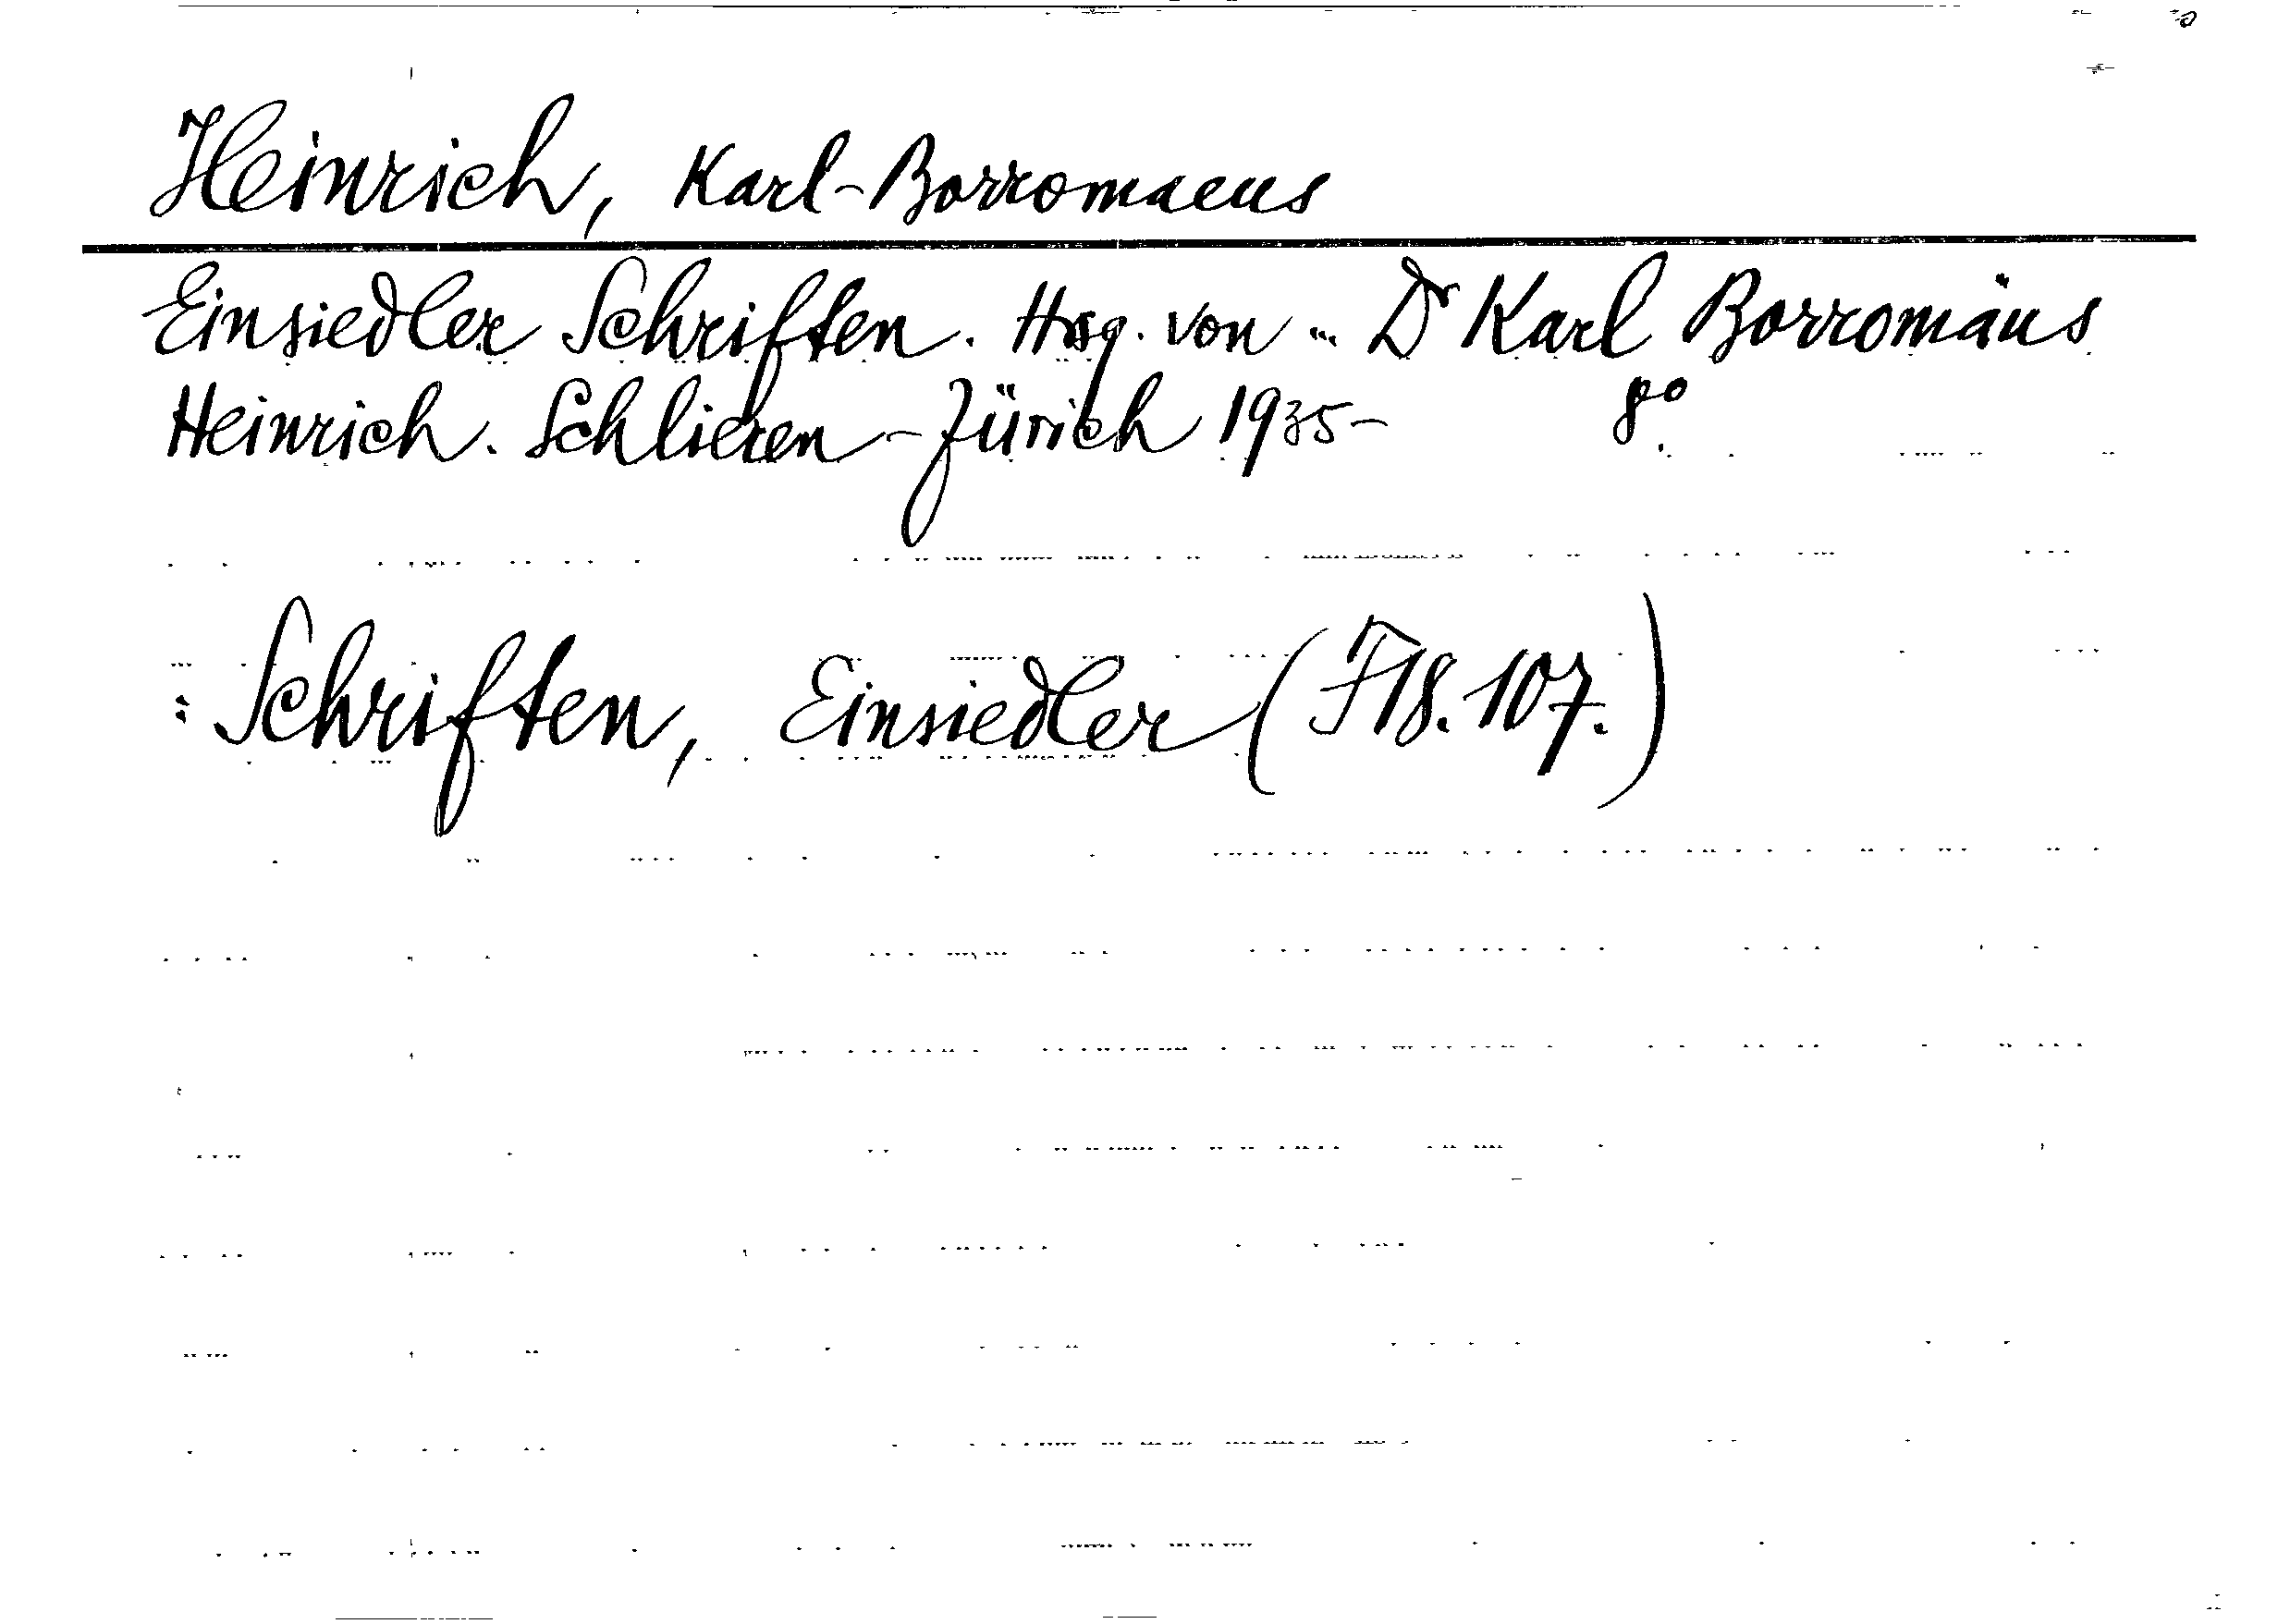 Heinrich, Karl-Borromaeus
Einsiedler Schriften. Hrsg. von ... Dr Karl Borromäus
Heinrich. Schlieren-Zürich 1935- 8°.
: Schriften, Einsiedler (F 18. 107.)